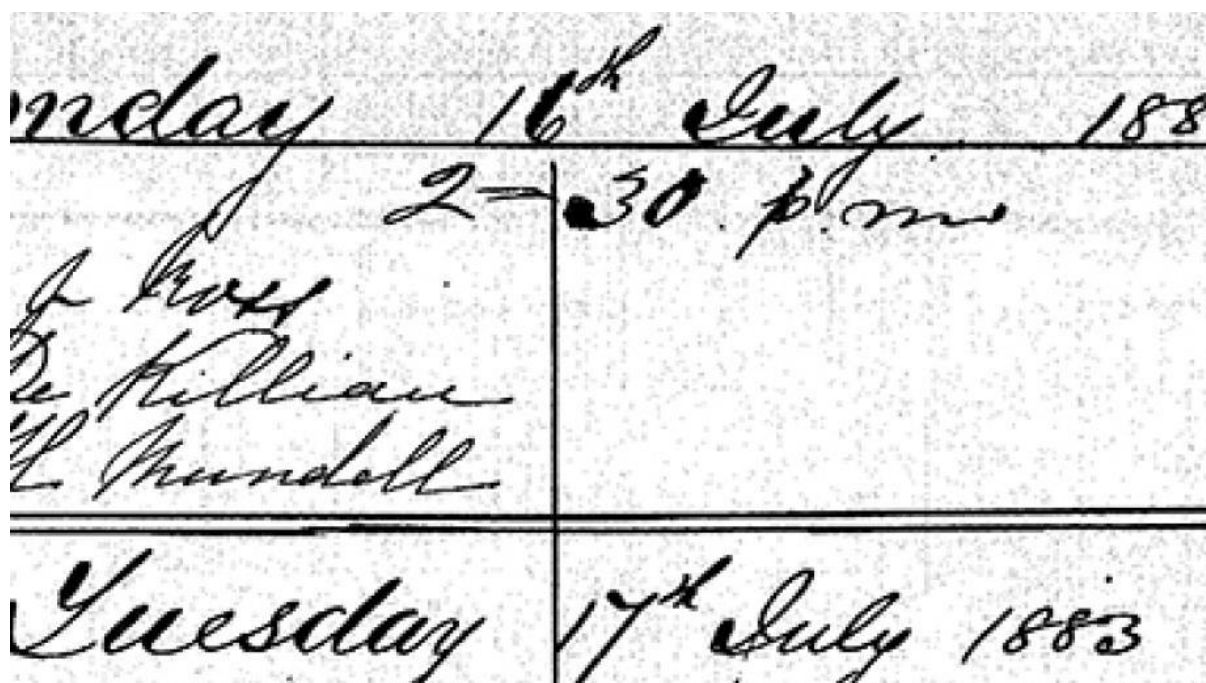 onday 16th July 188
2-30. p.m.
& Ross
De Killian
H Mundell
Tuesday 17th July 1883